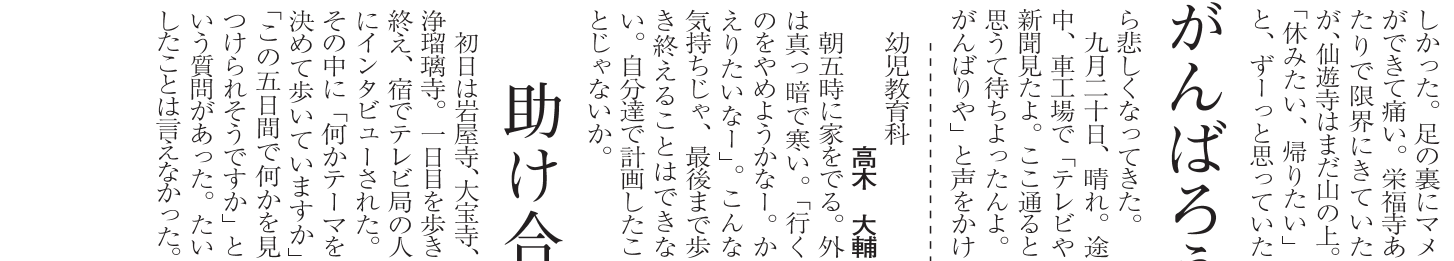 しかった。足の裏にマメ
ができて痛い。栄福寺あ
たりで限界にきていた
が、仙遊寺はまだ山の上。
「休みたい、帰りたい」
と、ずーっと思っていた
がんばろう
ら悲しくなってきた。
九月二十日、晴れ。途
中、車工場で「テレビや
新聞見たよ。ここ通ると
思うて待ちよったんよ。
がんばりや」と声をかけ
幼児教育科
高木 大輔
朝五時に家をでる。外
は真っ暗で寒い。「行く
のをやめようかなー。か
えりたいなー」。こんな
気持ちじゃ、最後まで歩
き終えることはできな
い。自分達で計画したこ
とじゃないか。
助け合
初日は岩屋寺、大宝寺、
浄瑠璃寺。一日目を歩き
終え、宿でテレビ局の人
にインタビューされた。
その中に「何かテーマを
決めて歩いていますか」
「この五日間で何かを見
つけられそうですか」と
いう質問があった。たい
したことは言えなかった。